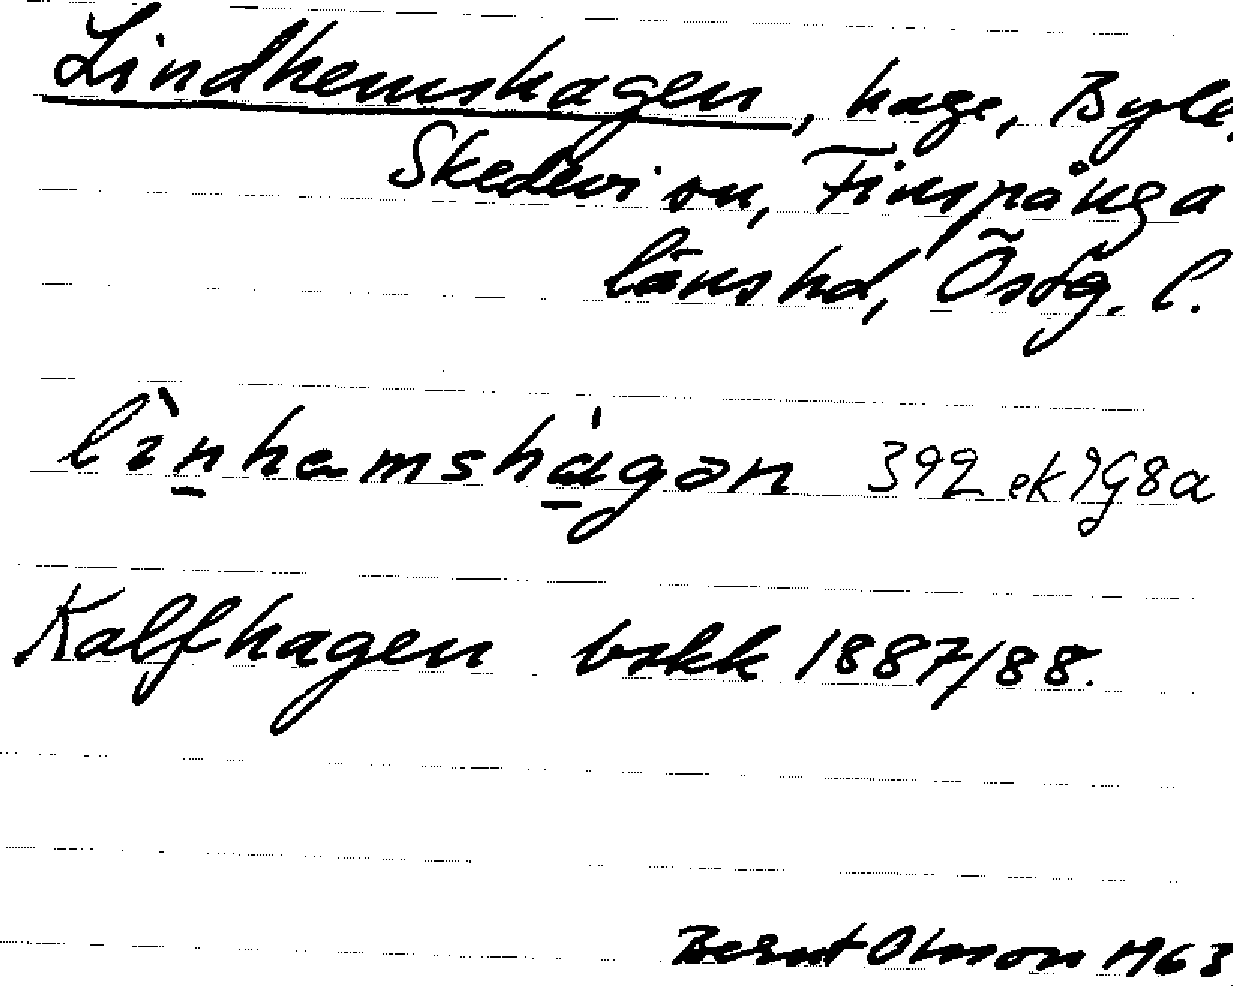 Lindhemshagen, hage, Byle,
Skedevi sn, Finspånga
länshd, Östg. l.
lìn̲hemshá̲gən 392 ek 9G8a
Kalfhagen bskk 1887/88.
Bernt Olsson 1963